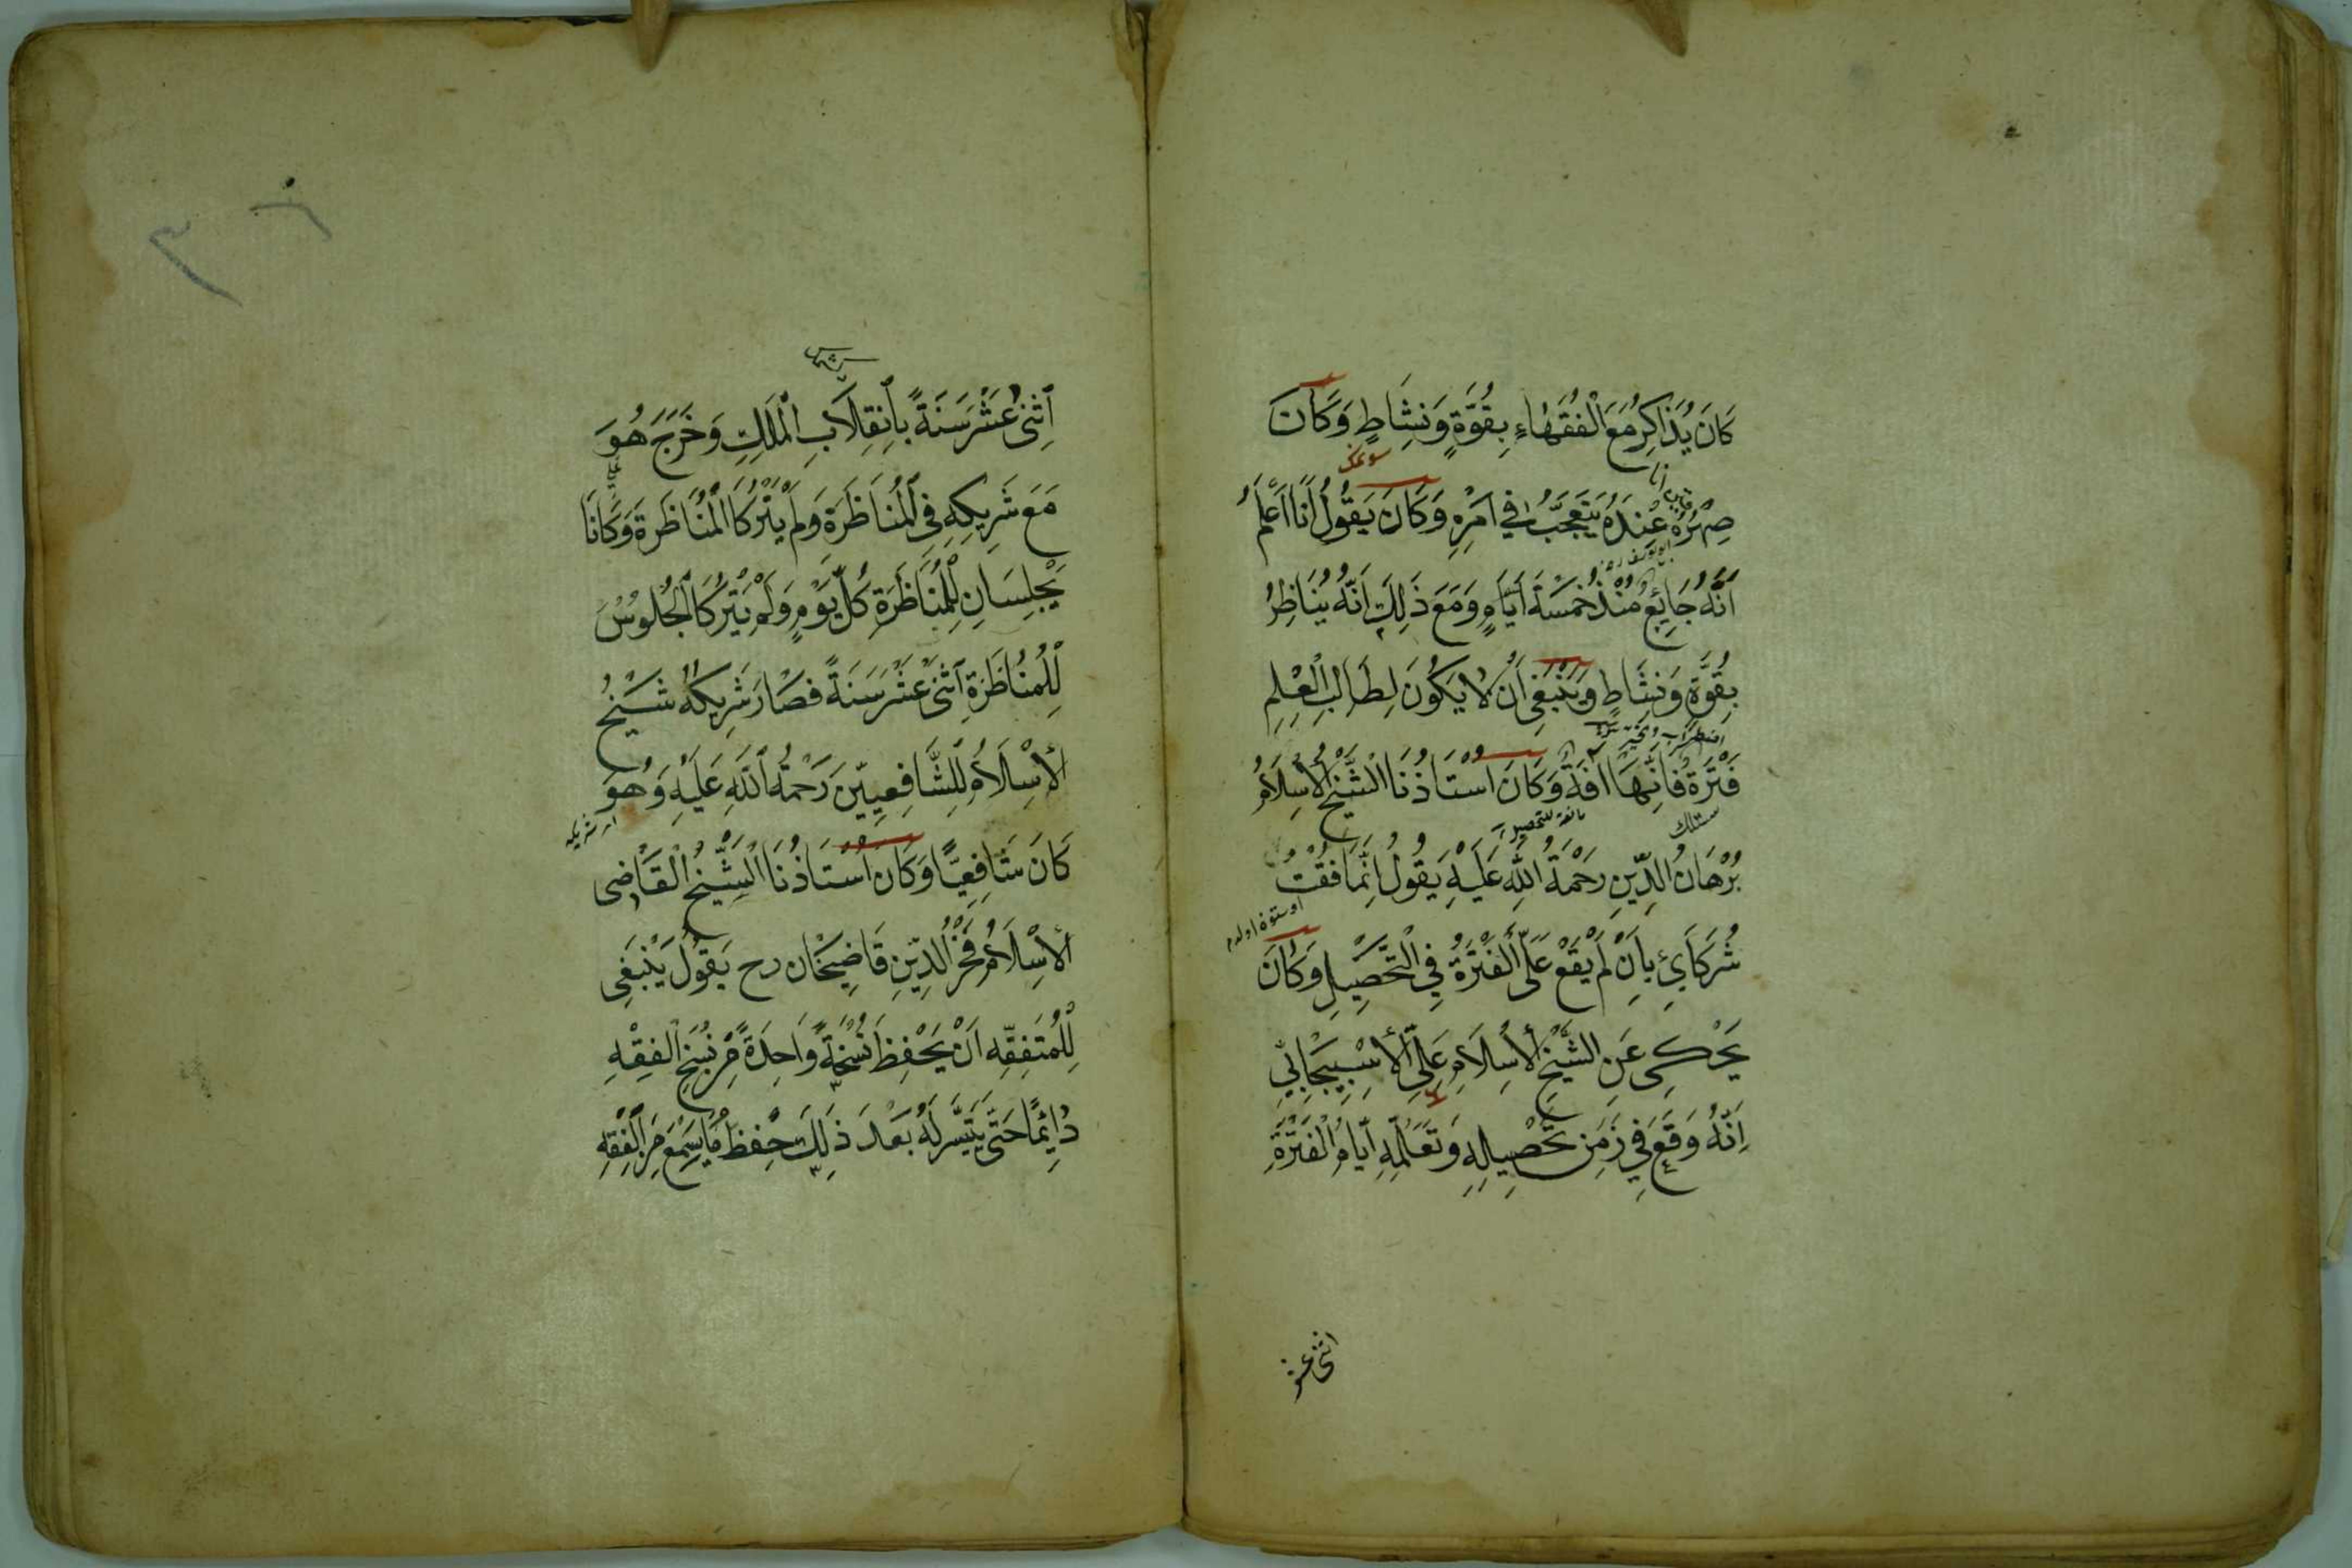 كَانَ يُذَاكِرُ مَعَ الْفُقَهَاءِ بِقُوَّةٍ وَنَشَاطٍ وَكَانَ
صِهْرُهُ عِنْدَهُ يَتَعَجَّبُ فِي اَمْرِهِ وَكَانَ يَقُولُ اَنَا اَعْلَمُ
اَنَّهُ جَايِعٌ مُنْذُ خَمْسَةَ اَيَّامٍ وَمَعَ ذَلِكَ اِنَّهُ يُنَاظِرُ
بِقُوَّةٍ وَنَشَاطٍ وَيَنْبَغِي اَنْ لَا يَكُونَ لِطَالِبِ الْعِلْمِ
فَتْرَةٌ فَاِنَّهَا اَفَةٌ وَكَانَ اُسْتَاذُنَا الشَّيْخُ الْاِسْلَامُ
بُرْهَانُ الدِّينِ رَحْمَةُ اللهِ عَلَيْهِ يَقُولُ اِنَّمَا فُقْتُ
شُرَكَائِي بِاَنْ لَمْ يَقَعْ عَلَىَّ الْفَتْرَةُ فِي التَّحْصِيلِ وَكَانَ
يَحْكِى عَنِ الشَّيْخِ الْاِسْلَامِ عَلِىِّ الْاِسْبِيجَابِيِّ
اِنَّهُ وَقَعَ فِي زَمَنِ تَحْصِيلِهِ وَتَعَلُّمِهِ اَيَّامُ الْفَتْرَةِ
اثنى عشر
اِثْنَى عَشَرَ سَنَةً بِاِنْقِلَابِ الْمَلِكِ وَخَرَجَ هُوَ
مَعَ شَرِيكِهِ فِي الْمُنَاظَرَةِ وَلَمْ يَتْرُكَا الْمُنَاظَرَةَ وَكَانَا
يَجْلِسَانِ لِلْمُنَاظَرَةِ كُلَّ يَوْمٍ وَلَمْ يَتْرُكَا الْجُلُوسَ
لِلْمُنَاظَرَةِ اثْنَى عَشَرَ سَنَةً فَصَارَ شَرِيكُهُ شَيْخُ
الْاِسْلَامِ لِلشَّافِعِيِّينَ رَحْمَةُ اللّٰهِ عَلَيْهِ وَهُوَ
كَانَ شَافِعِيًّا وَكَانَ اُسْتَاذُنَا الشَّيْخُ الْقَاضِى
الْاِسْلَامُ فَخْرُ الدِّينِ قَاضِيخَان رح يَقُولُ يَنْبَغِى
لِلْمُتَفَقِّهِ اَنْ يَحْفِظَ نُسْخَةً وَاحِدَةً مِنْ نُسَخِ الْفِقْهِ
دَائِمًا حَتَّى يَتَيَسَّرَ لَهُ بَعْدَ ذَلِكَ حِفْظُ مَا يَسْمَعُ مِنَ الْفِقْهِ